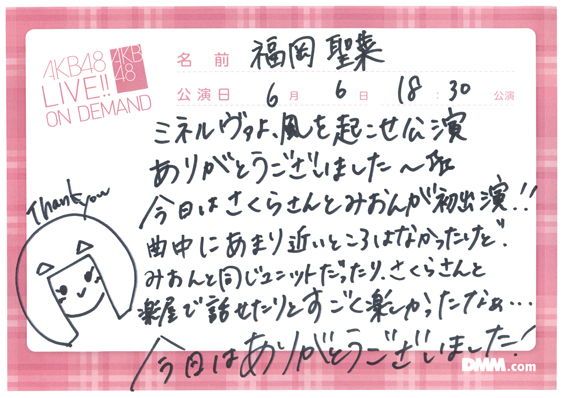 AKB48
LIVE!!
ON DEMAND
AKB
48
名前 福岡 聖菜
公演日 6月 6日 18:30 公演
ミネルヴァよ、風を起こせ公演
ありがとうございました〜
今日はさくらさんとみおんが初出演!!
曲中にあまり近いところはなかったけど、
みおんと同じユニットだったり、さくらさんと
楽屋で話せたりとすごく楽しかったなぁ…
今日はありがとうございました!
Thank you
DMM.com